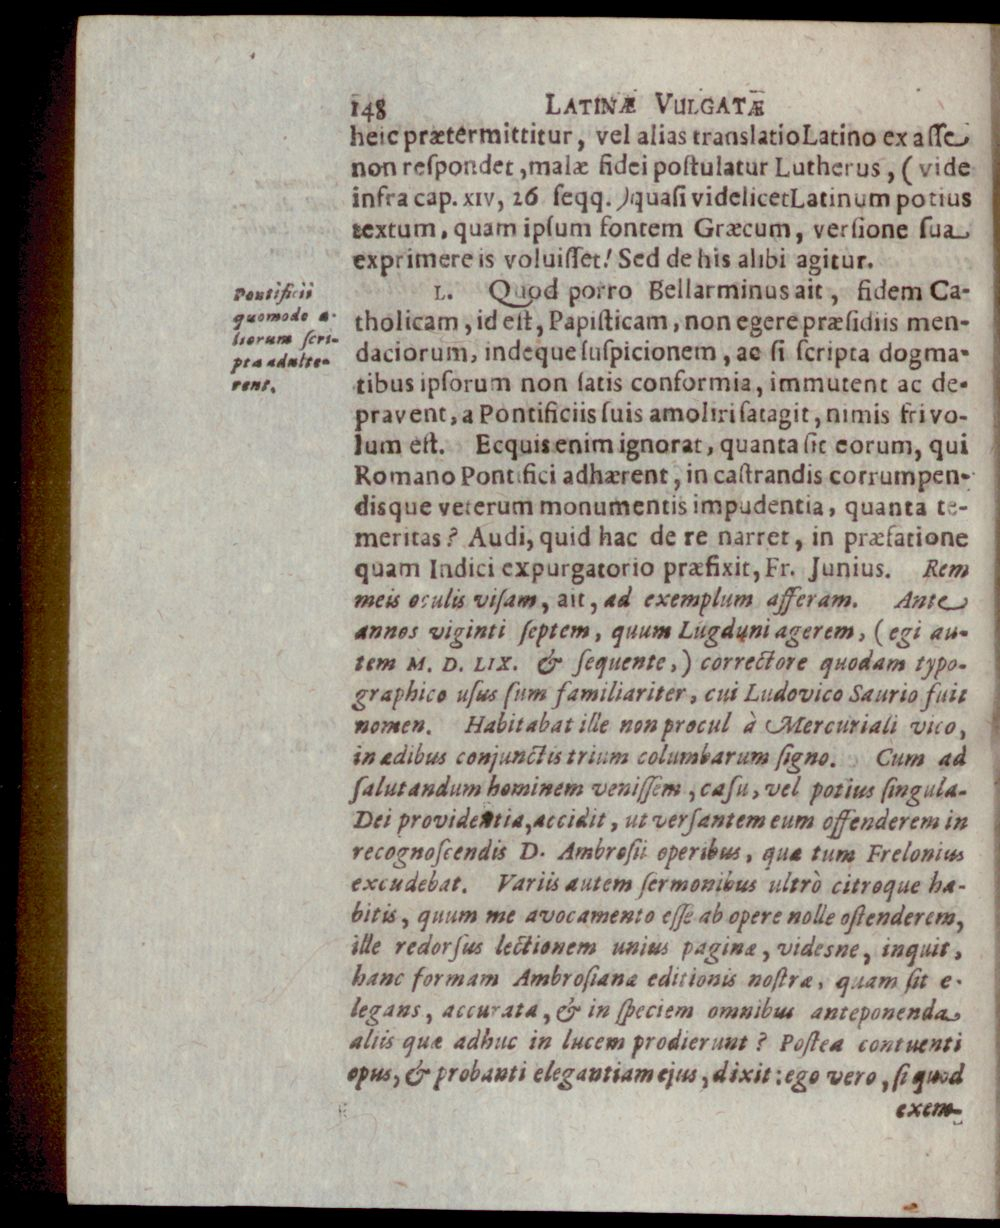 148 LATINÆ VULGATÆ
heic prætermittitur, vel alias translatio Latino ex asse
non respondet, malæ fidei postulatur Lutherus, (vide
infra cap. XIV, 26 seqq.) quasi videlicet Latinum potius
textum, quam ipsum fontem Græcum, versione sua
exprimere is voluisset! Sed de his alibi agitur.
Pontificii
quomodo a-
liorum scri-
pta adulte-
rent.
L. Quod porro Bellarminus ait, fidem Ca-
tholicam, id est, Papisticam, non egere præsidiis men-
daciorum, indeque suspicionem, ac si scripta dogma-
tibus ipsorum non satis conformia, immutent ac de-
pravent, a Pontificiis suis amoliri satagit, nimis frivo-
lum est. Ecquis enim ignorat, quanta sit eorum, qui
Romano Pontifici adhærent, in castrandis corrumpen-
disque veterum monumentis impudentia, quanta te-
meritas? Audi, quid hac de re narret, in præfatione
quam Indici expurgatorio præfixit, Fr. Junius. Rem
meis oculis visam, ait, ad exemplum afferam. Ante
annos viginti septem, quum Lugduni agerem, (egi au-
tem M. D. LIX. & sequente,) correctore quodam typo-
graphico usus sum familiariter, cui Ludovico Saurio fuit
nomen. Habitabat ille non procul à Mercuriali vico,
in ædibus conjunctis trium columbarum signo. Cum ad
salutandum hominem venissem, casu, vel potius singula-
Dei providentia, accidit, ut versantem eum offenderem in
recognoscendis D. Ambrosii operibus, quæ tum Frelonius
excudebat. Variis autem sermonibus ultrò citroque ha-
bitis, quum me avocamento esse ab opere nolle ostenderem,
ille redorsus lectionem unius paginæ, videsne, inquit,
hanc formam Ambrosianæ editionis nostræ, quam sit e-
legans, accurata, & in speciem omnibus anteponenda
aliis quæ adhuc in lucem prodierunt? Postea contuenti
opus, & probanti elegantiam ejus, dixit: ego vero, si quod
exem-